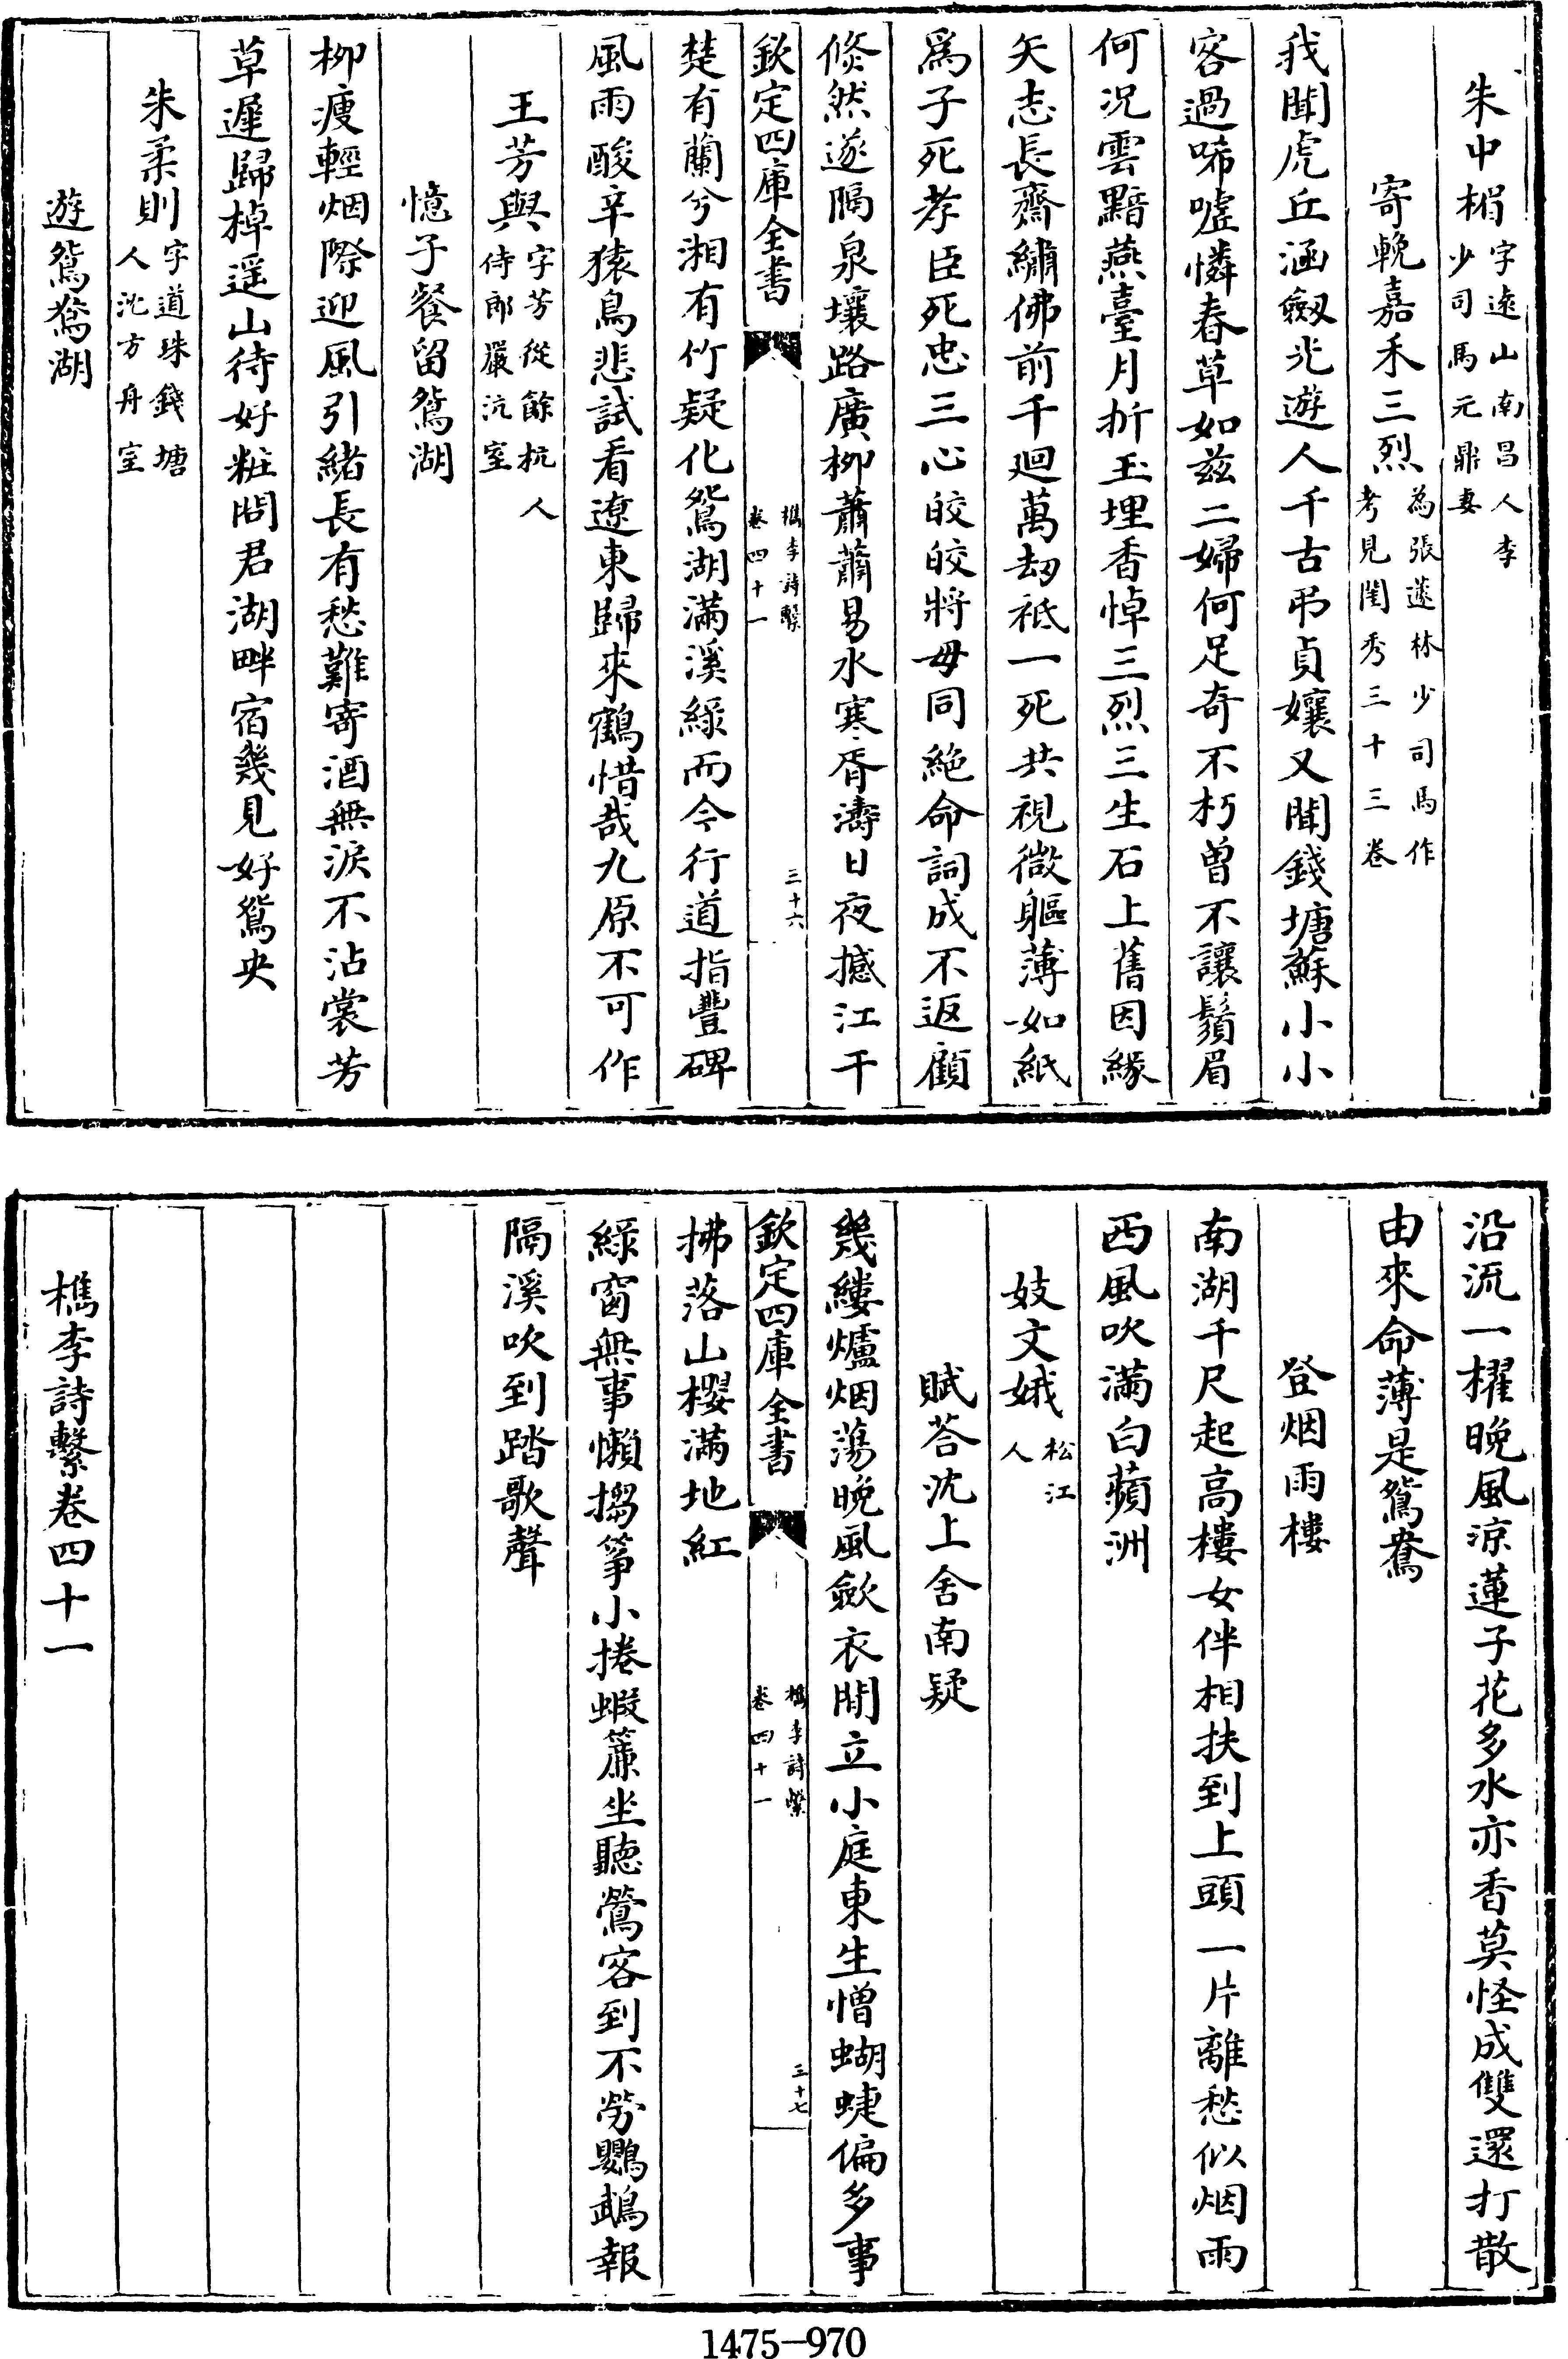 朱中楣字遠山南昌人李少司馬元鼎妻
寄輓嘉禾三烈為張蘧林少司馬作考見閨秀三十三卷
我聞虎丘涵劔光遊人千古弔貞孃又聞錢塘蘇小小
客過唏噓憐春草如兹二婦何足奇不朽曽不讓鬚眉
何况雲黯燕臺月折玉埋香悼三烈三生石上舊因緣
矢志長齋繡佛前千廻萬劫祗一死共視微軀薄如紙
爲子死孝臣死忠三心皎皎將毋同絶命詞成不返顧
倐然遂隔泉壤路廣柳蕭蕭易水寒胥濤日夜撼江干
欽定四庫全書
檇李詩繫
卷四十一
三十六
楚有蘭兮湘有竹疑化鴛湖滿溪緑而今行道指豐碑
風雨酸辛猿鳥悲試看遼東歸來鶴惜哉九原不可作
王芳與字芳從餘杭人侍郎嚴沆室
憶子餐留鴛湖
柳瘦輕烟際迎風引緒長有愁難寄酒無淚不沾裳芳
草遲歸棹遥山待好粧問君湖畔宿幾見好鴛央
朱柔則字道珠錢塘人沈方舟室
遊鴛鴦湖
沿流一櫂晚風涼蓮子花多水亦香莫怪成雙還打散
由來命薄是鴛鴦
登烟雨樓
南湖千尺起高樓女伴相扶到上頭一片離愁似烟雨
西風吹滿白蘋洲
妓文娥松江人
賦荅沈上舍南疑
幾縷爐烟蕩晚風歛衣閒立小庭東生憎蝴蝶偏多事
欽定四庫全書
檇李詩繫
卷四十一
三十七
拂落山櫻滿地紅
緑窗無事懶搊筝小捲蝦簾坐聽鶯客到不勞鸚鵡報
隔溪吹到踏歌聲
檇李詩繫卷四十一
1475-970